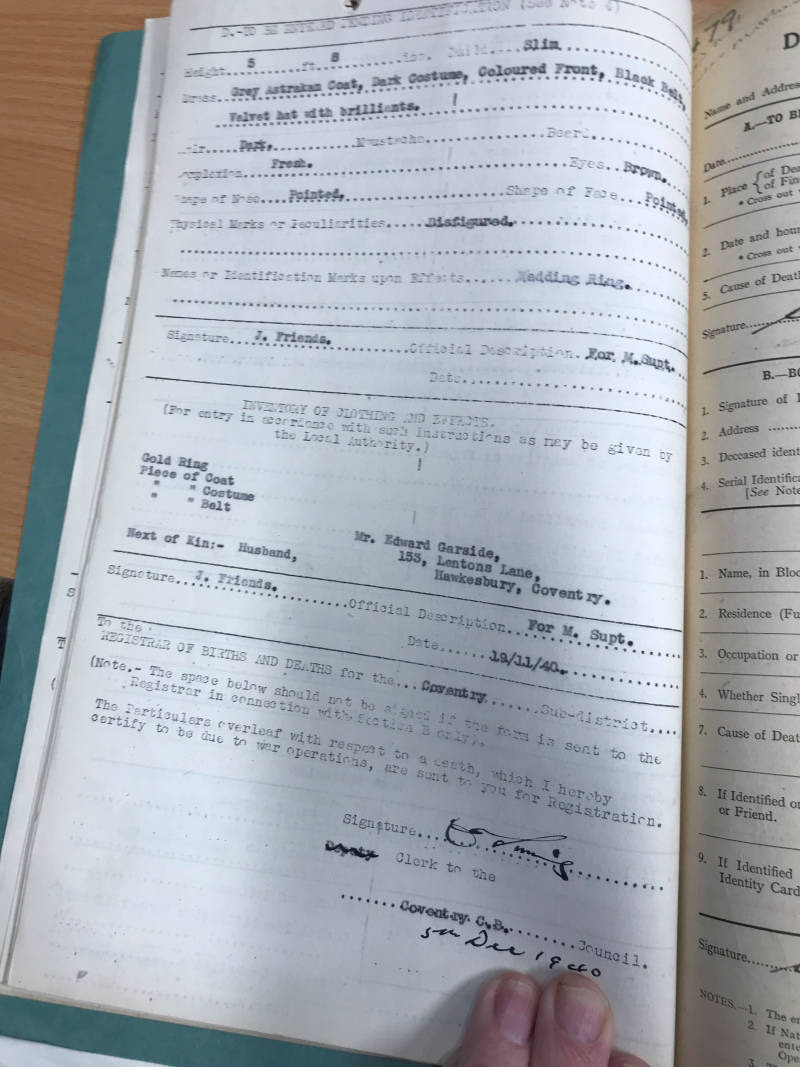 D.-TO BE ENTERED PENDING IDENTIFICATION (See Note 4)
Height....5.......ft...8.........ins. Build....Slim.........
Dress...Grey Astrakan Coat, Dark Costume, Coloured Front, Black Belt,
Velvet hat with brilliants.
Hair....Dark,..........Moustache...............Beard..............
Complexion....Fresh..........................Eyes...Brown.
Shape of Nose....Pointed,.....................Shape of Face...Pointed,
Physical Marks or Peculiarities.....Disfigured.
Names or Identification Marks upon Effects.......Wedding Ring.
Signature...J. Friends...........Official Description. For M. Supt.
Date.
INVENTORY OF CLOTHING AND EFFECTS.
(For entry in accordance with such instructions as may be given by
the Local Authority.)
Gold Ring
Piece of Coat
" " Costume
" " Belt
Next of Kin:- Husband, Mr. Edward Garside,
153, Lentons Lane,
Hawkesbury, Coventry.
Signature...J. Friends...........Official Description...For M. Supt.
Date......19/11/40.
To the
REGISTRAR OF BIRTHS AND DEATHS for the...Coventry.......Sub-district....
(Note.- The space below should not be signed if the form is sent to the
Registrar in connection with Section B only).
The Particulars overleaf with respect to a death, which I hereby
certify to be due to war operations, are sent to you for Registration.
Signature...
Deputy Clerk to the
.......Coventry C.B.........Council.
5th Dec 1940
79
D
Name and Addres
A.—TO B
Date
1. Place { of Dea
of Fin
* Cross out
2. Date and hou
* Cross out
5. Cause of Death
Signature
B.—BO
1. Signature of
2. Address
3. Deceased ident
4. Serial Identifica
[See Note
1. Name, in Bloc
2. Residence (Fu
3. Occupation or
4. Whether Singl
7. Cause of Death
8. If Identified or
or Friend.
9. If Identified
Identity Card
Signature
NOTES.—1. The en
2. If Nat
ente
Ope
3.